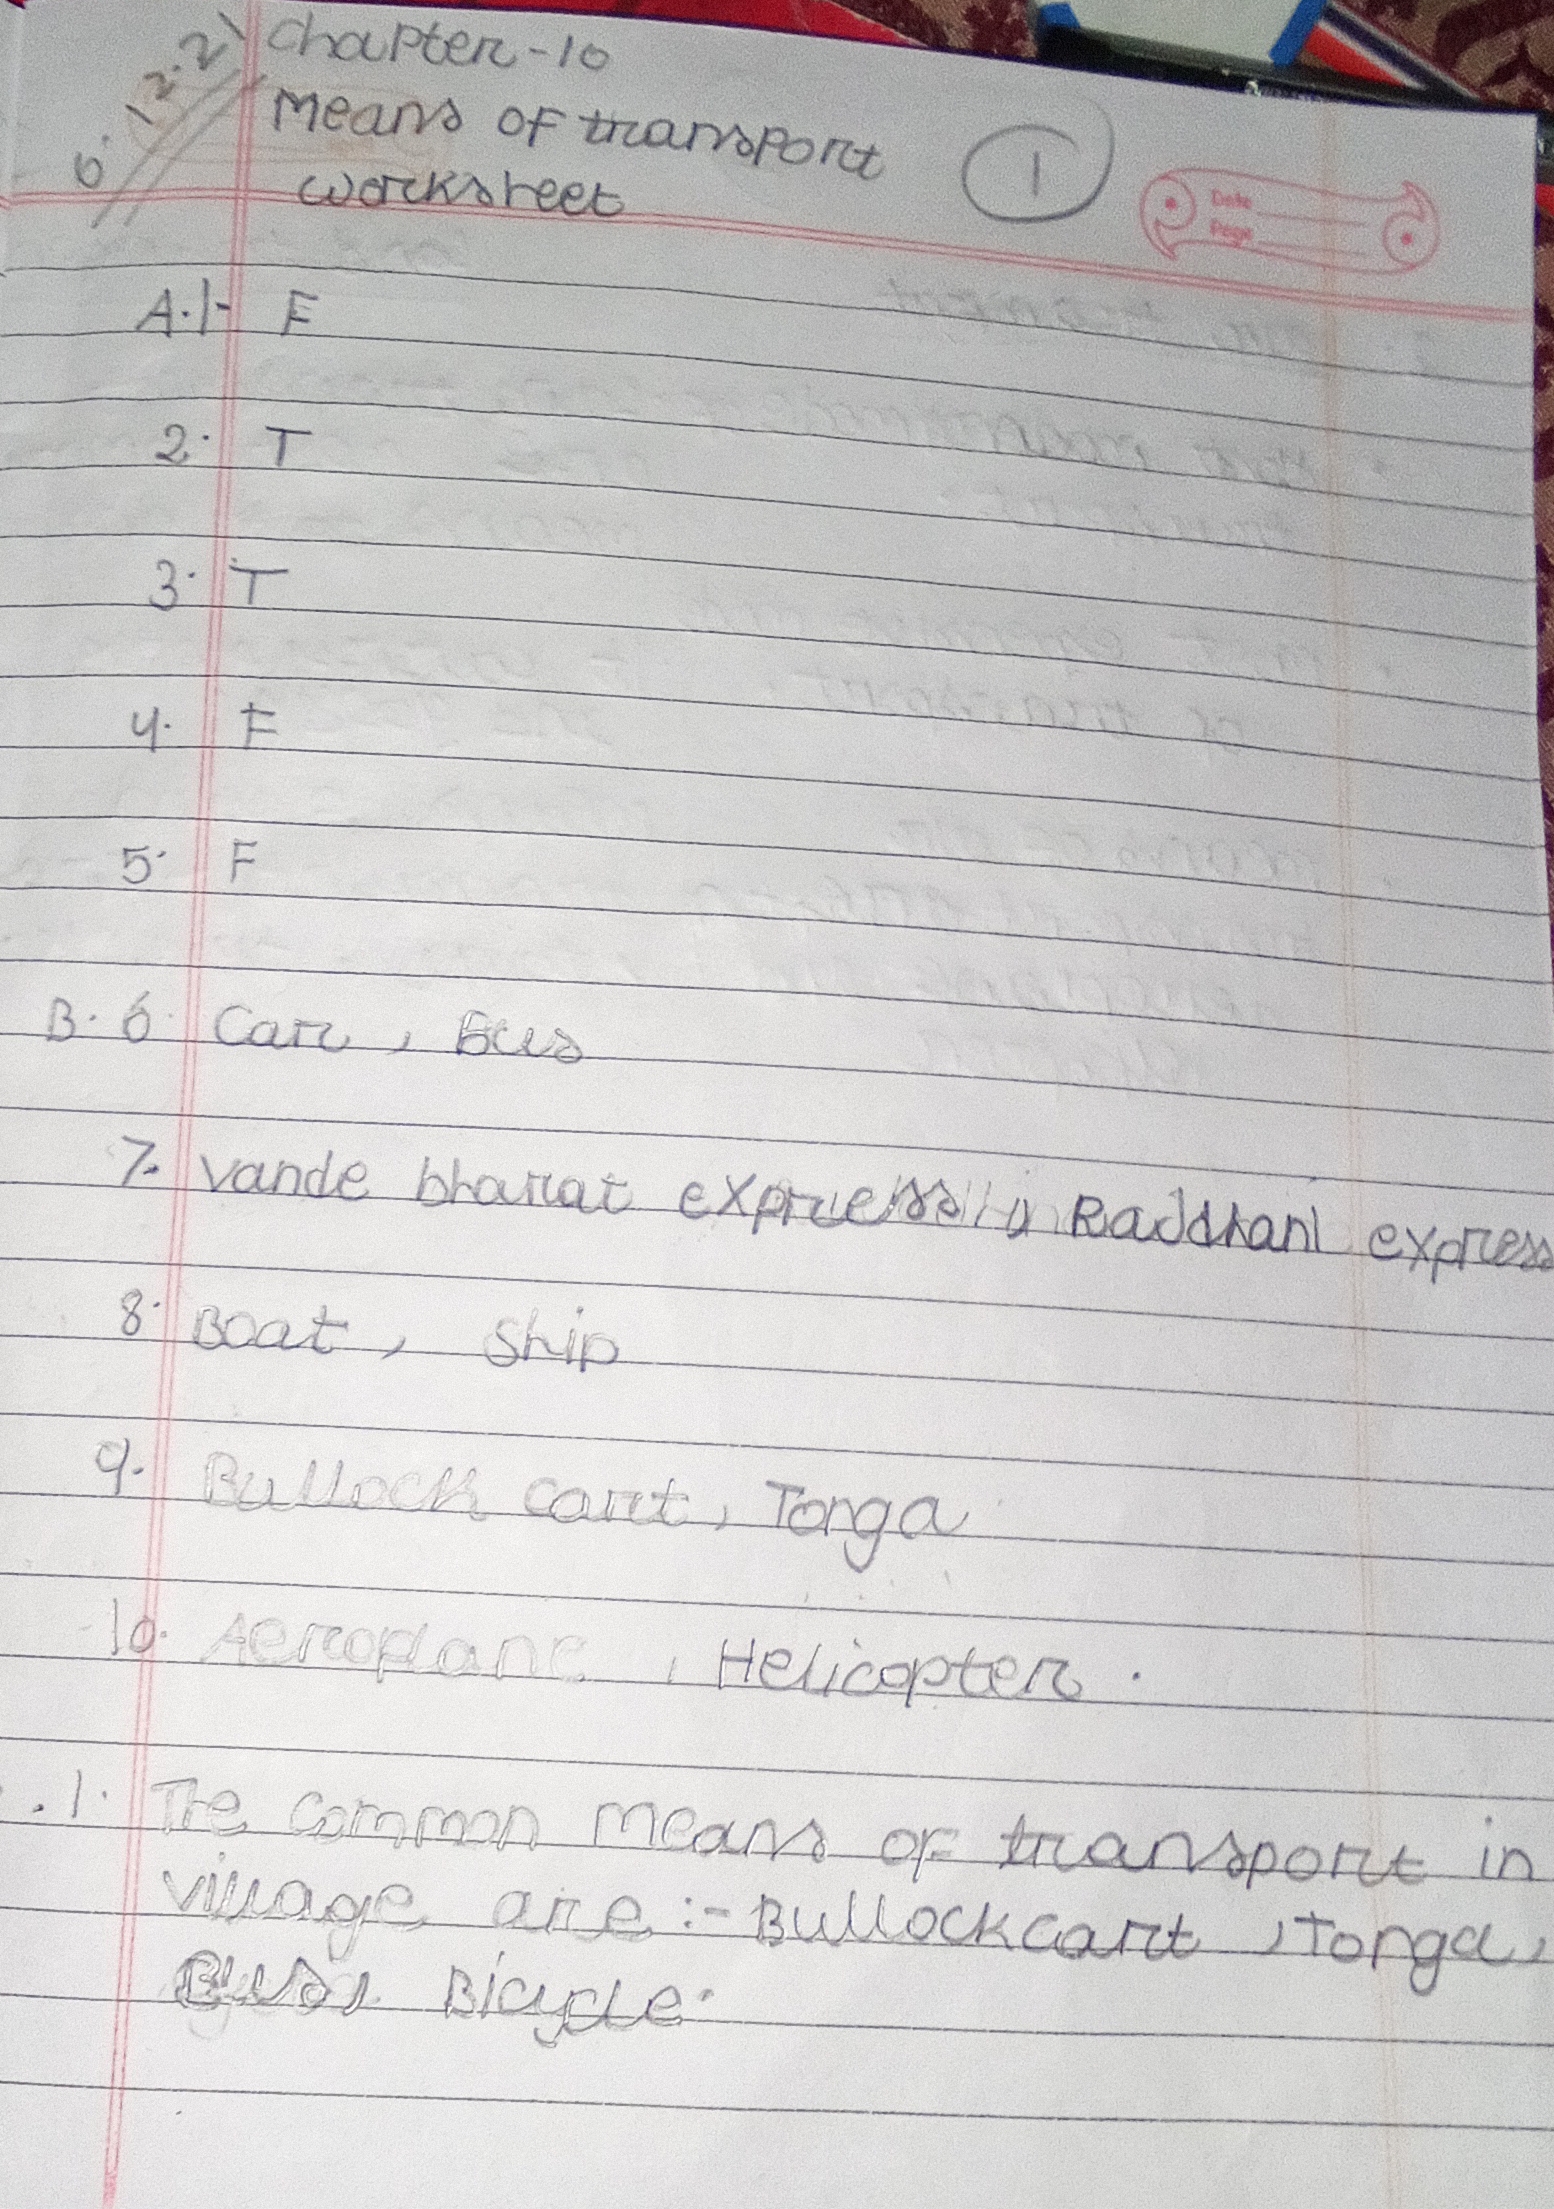 6.12.21
Chapter-10
Means of transport
worksheet
1
Date
Page
A.1- F
2. T
3. T
4. F
5. F
B. 6. Car, Bus
7. Vande bharat express, Raddhani express
8. Boat, Ship
9. Bullock cart, Tonga
10. Aeroplane, Helicopter.
.1. The common means of transport in
village are :- Bullockcart, Tonga,
Bus, Bicycle.